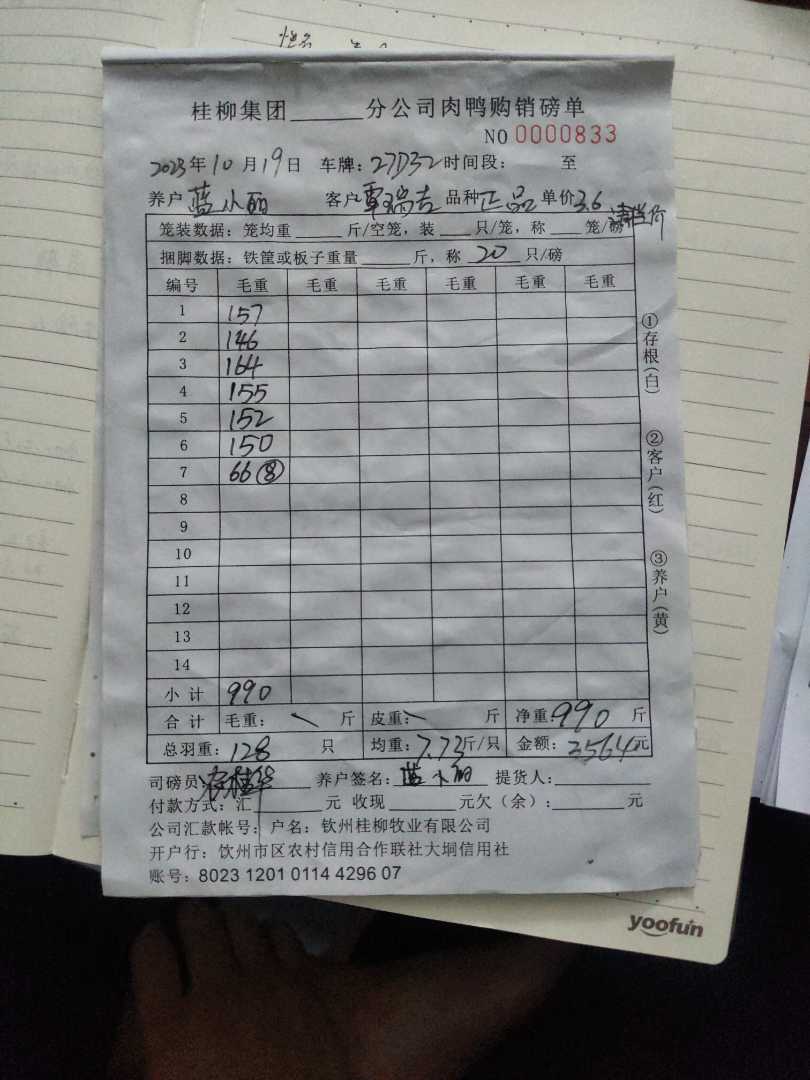 桂柳集团______分公司肉鸭购销磅单
NO 0000833
2023年10月19日 车牌:27D32 时间段: 至
养户 蓝小丽 客户 覃瑞吉 品种 正品 单价 3.6
笼装数据:笼均重____斤/空笼,装___只/笼,称___笼/磅
捆脚数据:铁筐或板子重量_____斤,称 20 只/磅
编号 毛重 毛重 毛重 毛重 毛重 毛重
1 157
2 146
3 164
4 155
5 152
6 150
7 66⑧
8
9
10
11
12
13
14
小计 990
合计 毛重: 斤 皮重: 斤 净重:990斤
总羽重:128只 均重:7.73斤/只 金额:3564元
司磅员 养户签名:蓝小丽 提货人:
付款方式:汇______元 收现______元欠(余):______元
公司汇款帐号:户名:钦州桂柳牧业有限公司
开户行:钦州市区农村信用合作联社大垌信用社
账号:8023 1201 0114 4296 07
①存根(白)
②客户(红)
③养户(黄)
yoofun